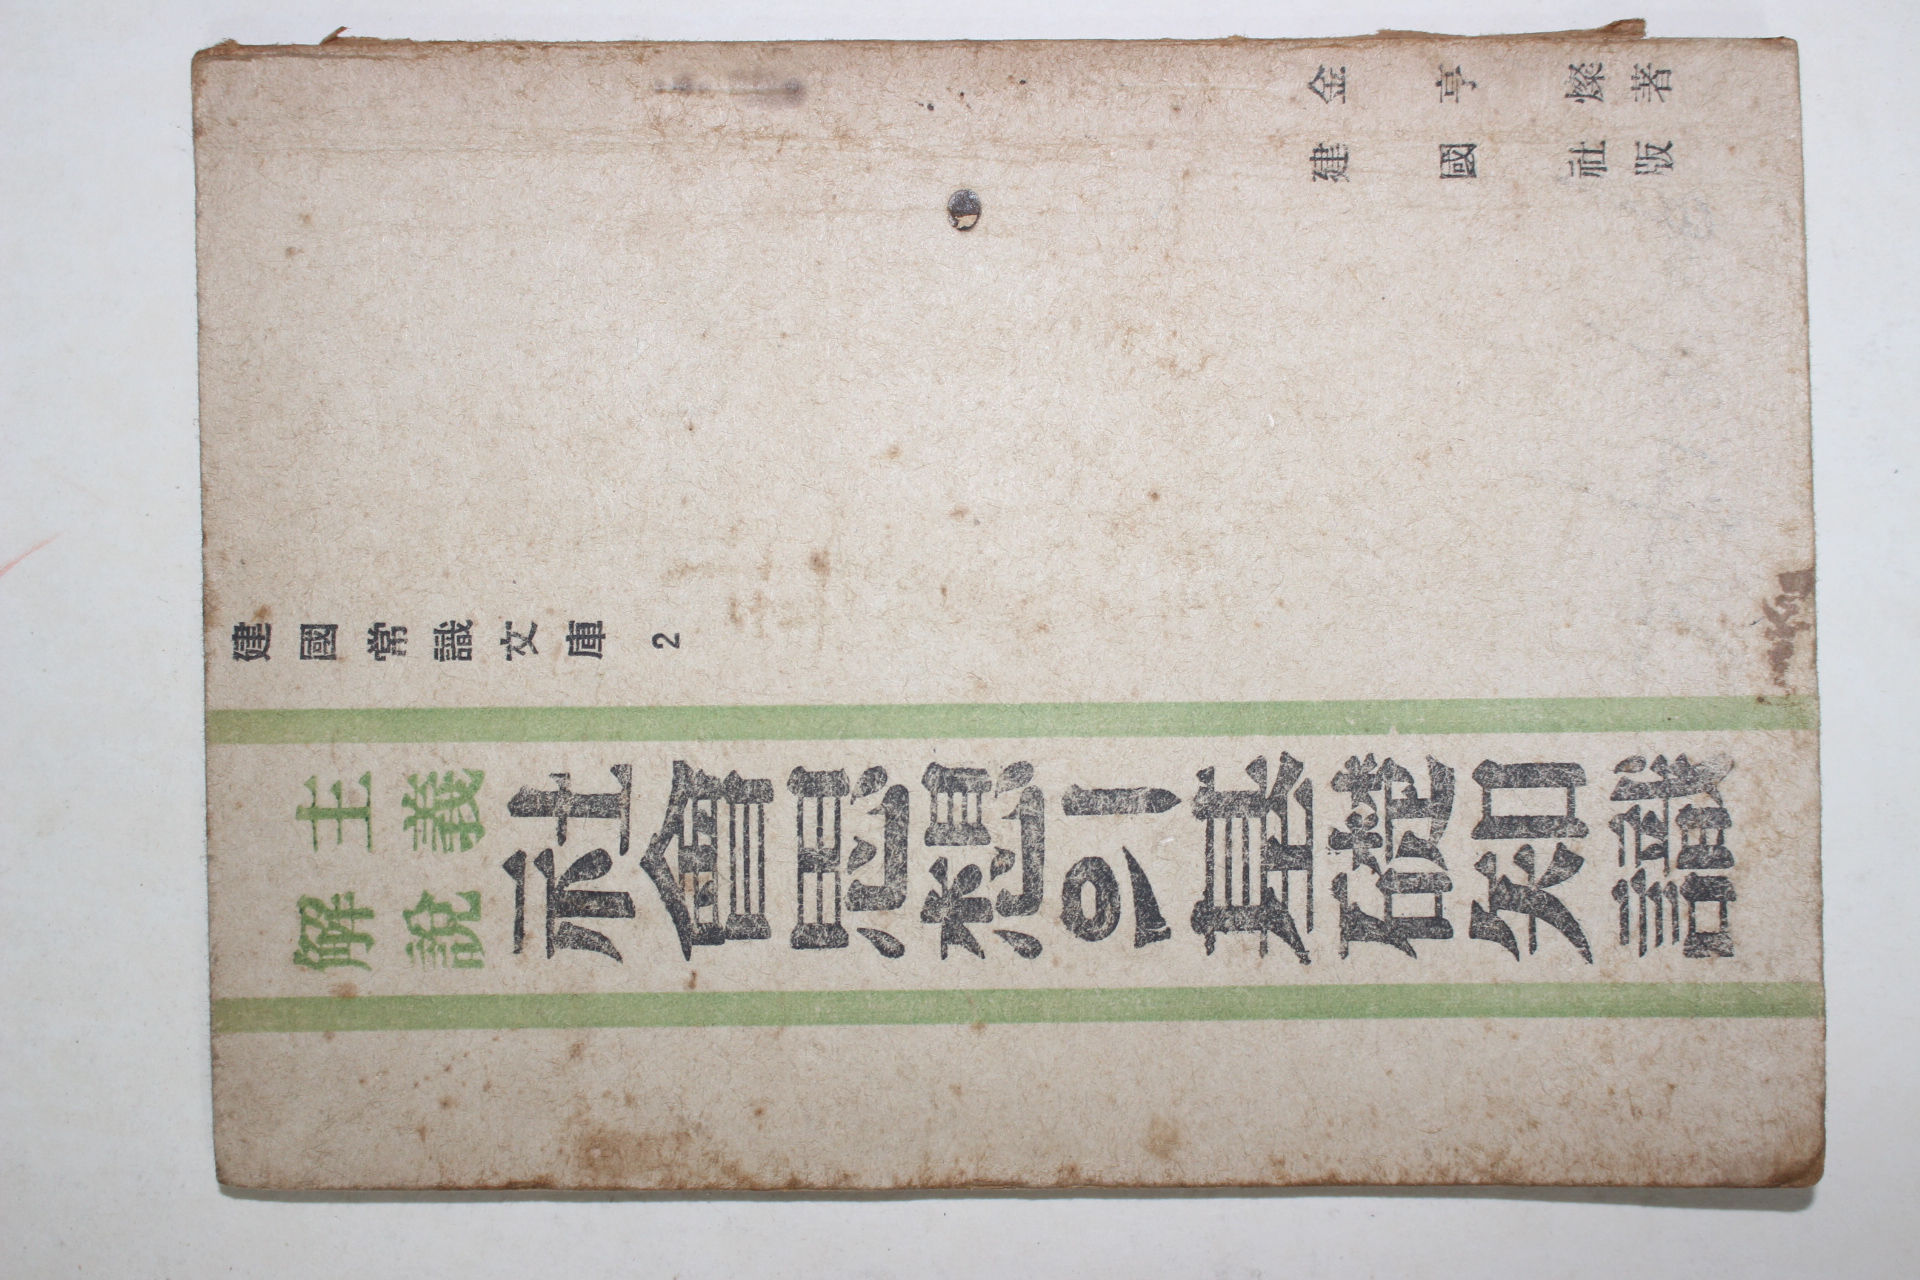 金亨燦著
建國社版
建國常識文庫 2
主義
解說
社會思想의基礎知識